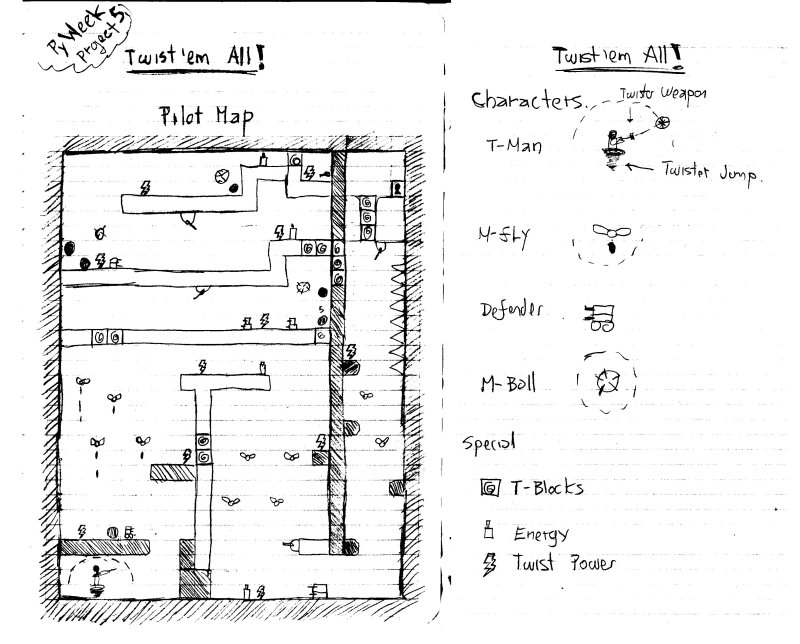 PyWeek 5
Project
Twist'em All!
Pilot Map
5
Twist'em All!
Characters.
Twister Weapon
T-Man
Twister Jump.
M-fly
Defender
M-Boll
Special
T-Blocks
Energy
Twist Power